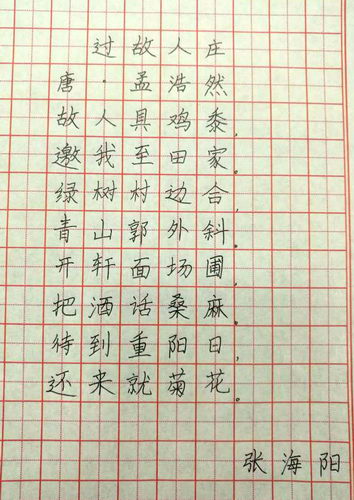 过故人庄
唐·孟浩然
故人具鸡黍,
邀我至田家。
绿树村边合,
青山郭外斜。
开轩面场圃,
把酒话桑麻。
待到重阳日,
还来就菊花。
张海阳